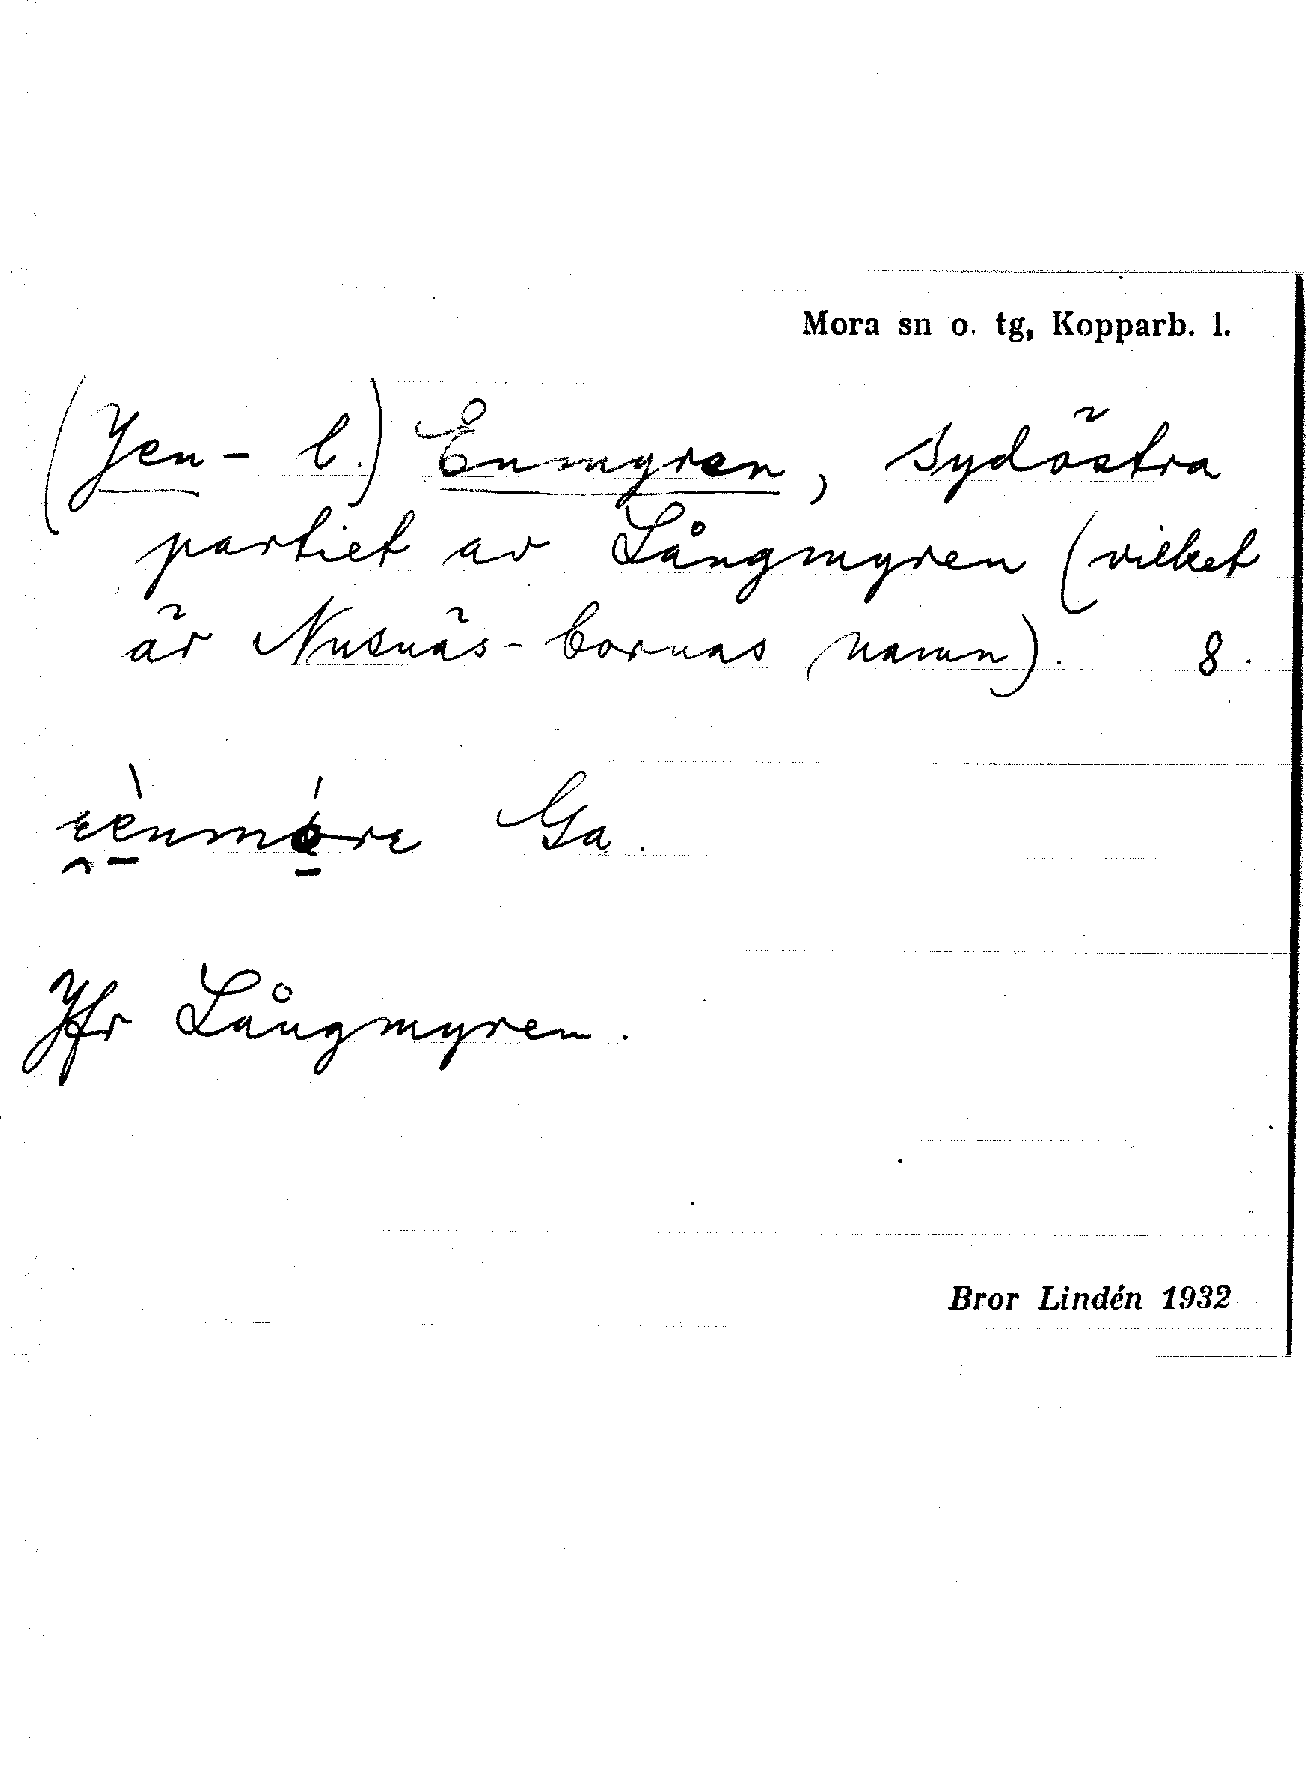 Mora sn o. tg, Kopparb. l.
(Jen- l.) Enmyren, sydöstra
partiet av Långmyren (vilket
är Nusnäs-bornas namn). 8.
Ga.
Jfr Långmyren.
Bror Lindén 1932